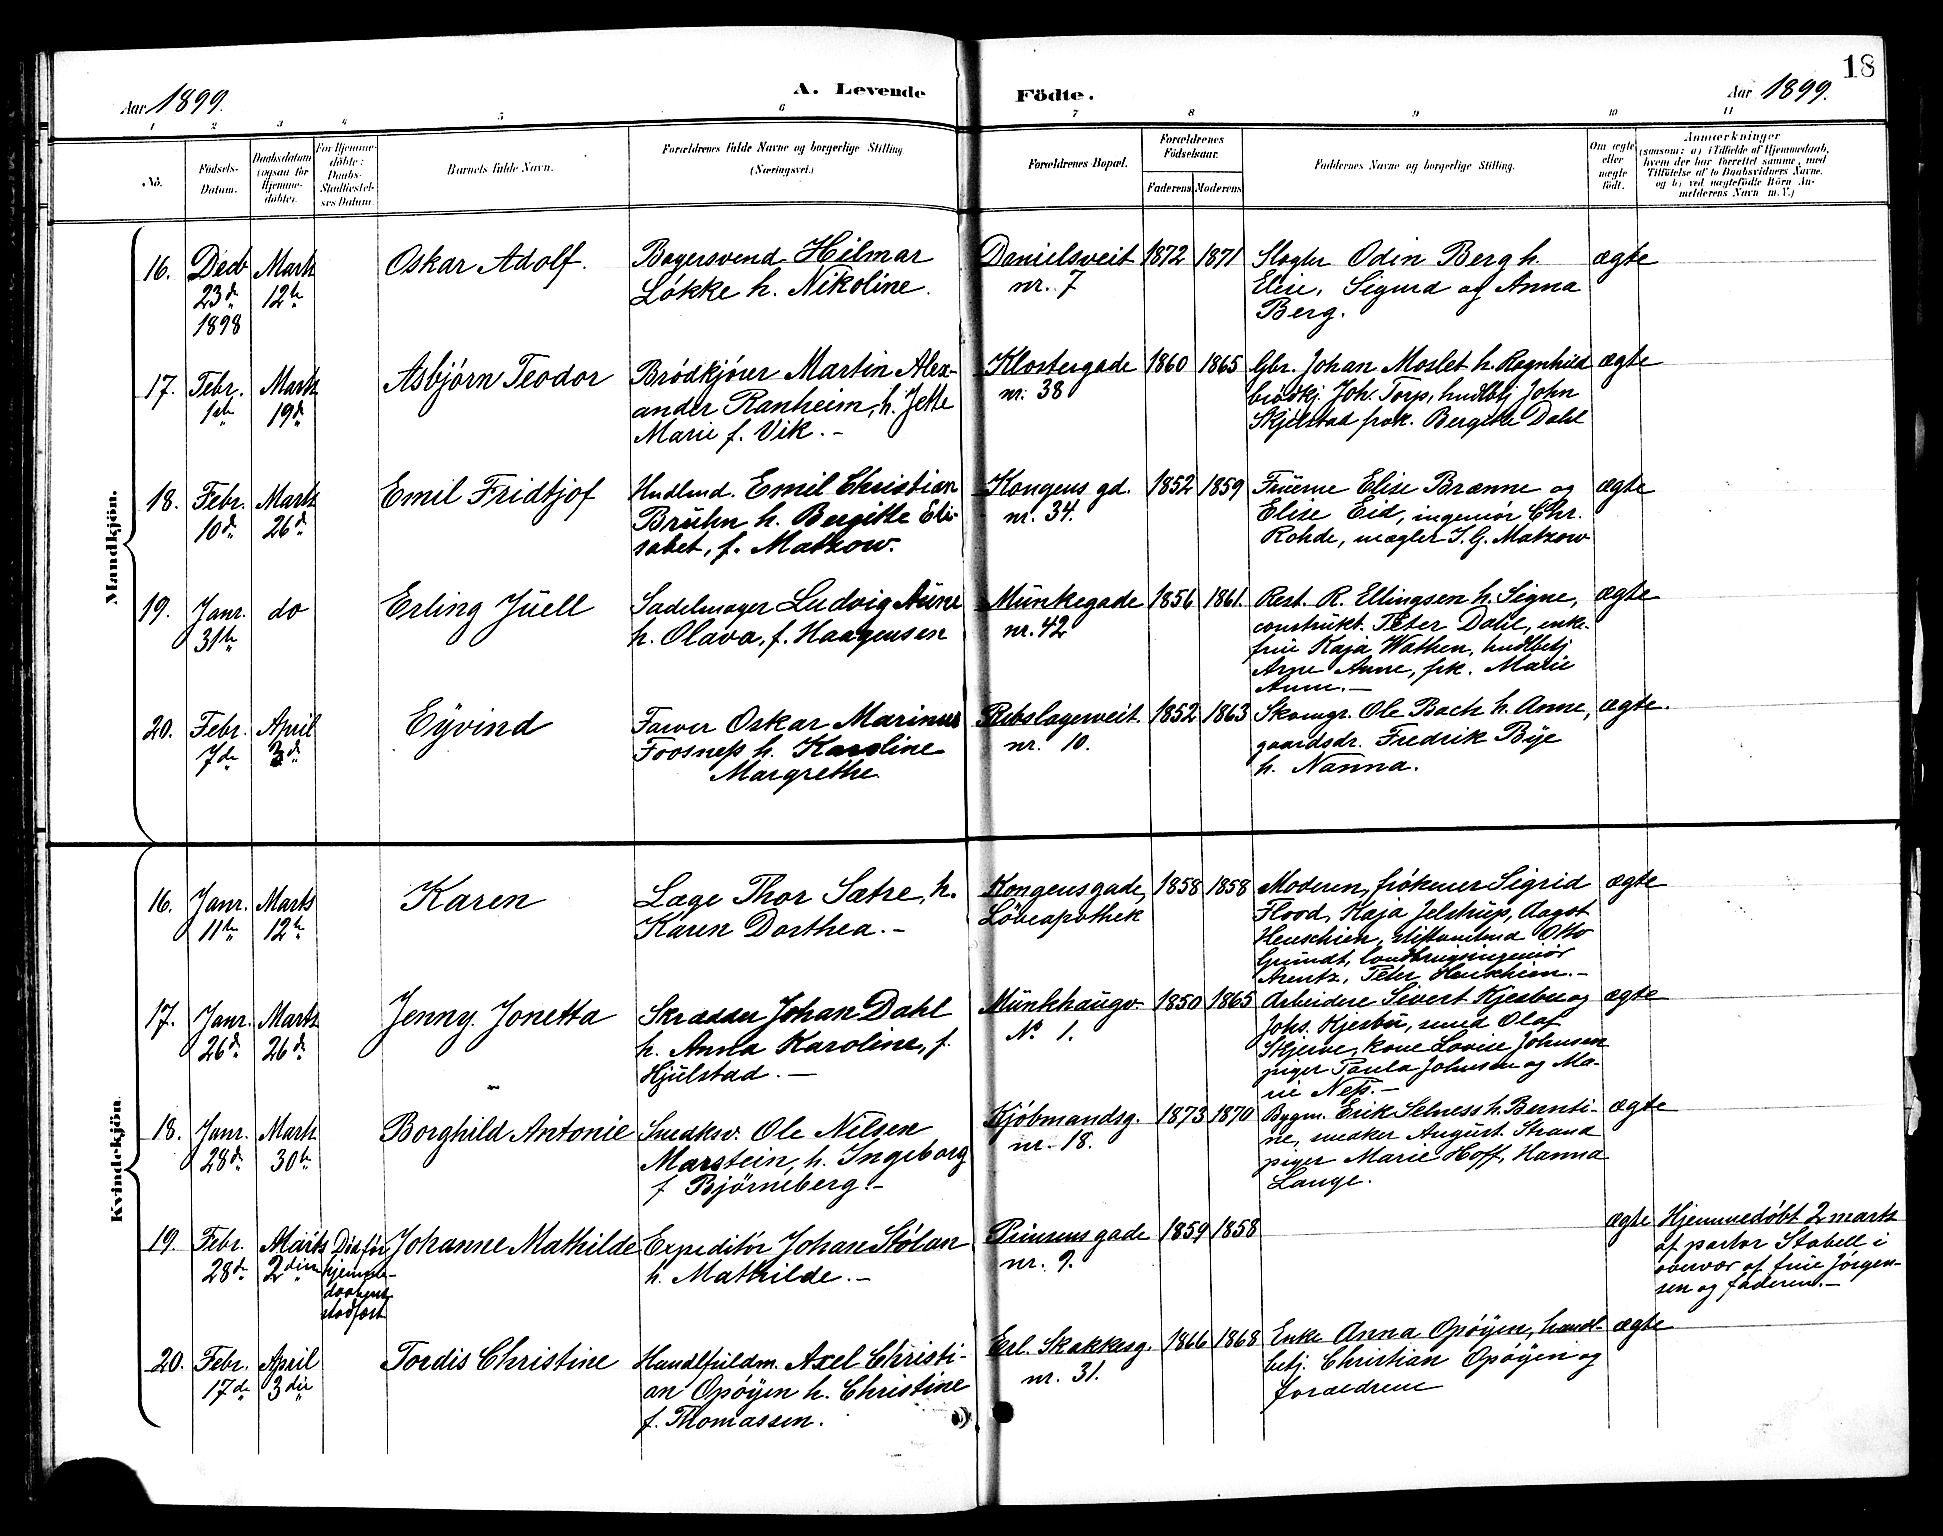 18
Aar 1899.
A. Levende
Födte.
Aar 1899.
1 2 3 4 5 6 7 8 9 10 11
No.
Födsels-
Datum.
Daabsdatum
(ogsaa for
Hjemme-
döbte).
For Hjemme-
döbte:
Daabs-
Stadfæstel-
ses Datum.
Barnets fulde Navn.
Forældrenes fulde Navne og borgerlige Stilling
(Næringsvei.)
Forældrenes Bopæl.
Forældrenes
Födselsaar.
Faderens
Moderens
Faddernes Navne og borgerlige Stilling.
Om ægte
eller
uægte
födt.
Anmærkninger
(saasom: a) i Tilfælde af Hjemmedaab,
hvem der har forrettet samme, med
Tilföielse af to Daabsvidners Navne.
og b) ved uægtefödte Börn An-
melderens Navn m. V.)
Mandkjön.
16. Decb 23d 1898
Marts 12te
Oskar Adolf.
Bagersvend Hilmar
Løkke h. Nikoline.
Danielsveit
nr. 7
1872 1871
Slagter Odin Berg h.
Elise, Sigurd og Anna
Berg.
ægte
17. Febr. 1ste
Marts 19d
Asbjørn Teodor
Brödkjörer Martin Alex-
ander Ranheim, h. Jette
Marie f. Vik. -
Klostergade
nr. 38
1860 1865
Gbr. Johan Moslet h. Ragnhild
brödkj. Joh. Torp, hndlbtj John
Skjelstad frøk. Bergitte Dahl
ægte
18. Febr. 10d.
Marts 26d
Emil Fridtjof
Hndlmd. Emil Christian
Brühn h. Bergitte Eli-
sabet, f. Matzow.
Kongens gd.
nr. 34.
1852 1859
Fruerne Elise Brænne og
Elise Eid, ingeniør Chr.
Rohde, mægler I. G. Matzow
ægte
19. Janr. 31te
do
Erling Juell
Sadelmager Ludvig Aune
h. Olava, f. Haagensen
Munkegade
nr. 42
1856 1861.
Rest. R. Ellingsen h. Signe,
construkt. Peter Dahl, enke-
frue Kaja Wathen, hndlbetj
Arne Aune, frk. Marie
Aune. -
ægte
20. Febr. 7de
April 3d
Eyvind
Farver Oskar Marinus
Foosness h. Karoline
Margrethe
Rebslagerveit.
nr. 10.
1852 1863
Skomgr. Ole Bach h. Anne,
gaardsdr. Fredrik Bye
h. Nanna.
ægte.
Kvindekjön.
16. Janr. 11te
Marts 12te
Karen
Læge Thor Sætre, h.
Karen Dorthea. -
Kongensgade,
Löveapothek
1858 1858
Moderen, frökener Sigrid
Flood, Kaja Jelstrup, Aagot
Henschien, stiftamtmd Otto
Grundt, landbrugsingeniør
Arentz, Peter Henschien. -
ægte
17. Janr. 26d
Marts 26d
Jenny Jonetta
Skrædder Johan Dahl
h. Anna Karoline, f.
Hjulstad. -
Munkhaugv.
No 1.
1850 1865
Arbeidere Sivert Kjesbu og
Johs. Kjesbu, smed Olaf
Skjerve, kone Lovise Johnsen
piger Paula Johnsen og Ma-
rie Ness. -
ægte
18. Janr. 28d
Marts 30te
Borghild Antonie
Snedksv. Ole Nilsen
Marstein, h. Ingeborg
f Bjørneberg. -
Kjöbmandsg.
nr. 18.
1873 1870
Bygm. Erik Selness h. Bernti-
ne, snedker August Strand
piger Marie Hoff, Hanna
Lange.
ægte
19. Febr. 28d
Marts 2den
Död før
hjemme-
daabens
stadfæst
Johanne Mathilde
Expeditör Johan Stölan
h. Mathilde. -
Prinsensgade
nr. 9.
1859 1858
ægte
Hjemmedøbt 2 marts
af pastor Stabell i
overvær af frue Jørgen-
sen og faderen. -
20. Febr. 17de
April 3die
Tordis Christine
Handlfuldm. Axel Christi-
an Opöyen h. Christine
f. Thomassen.
Erl. Skakkesg.
nr. 31.
1866 1868
Enke Anna Opöyen, handl-
betj. Christian Opöyen og
forældrene
ægte